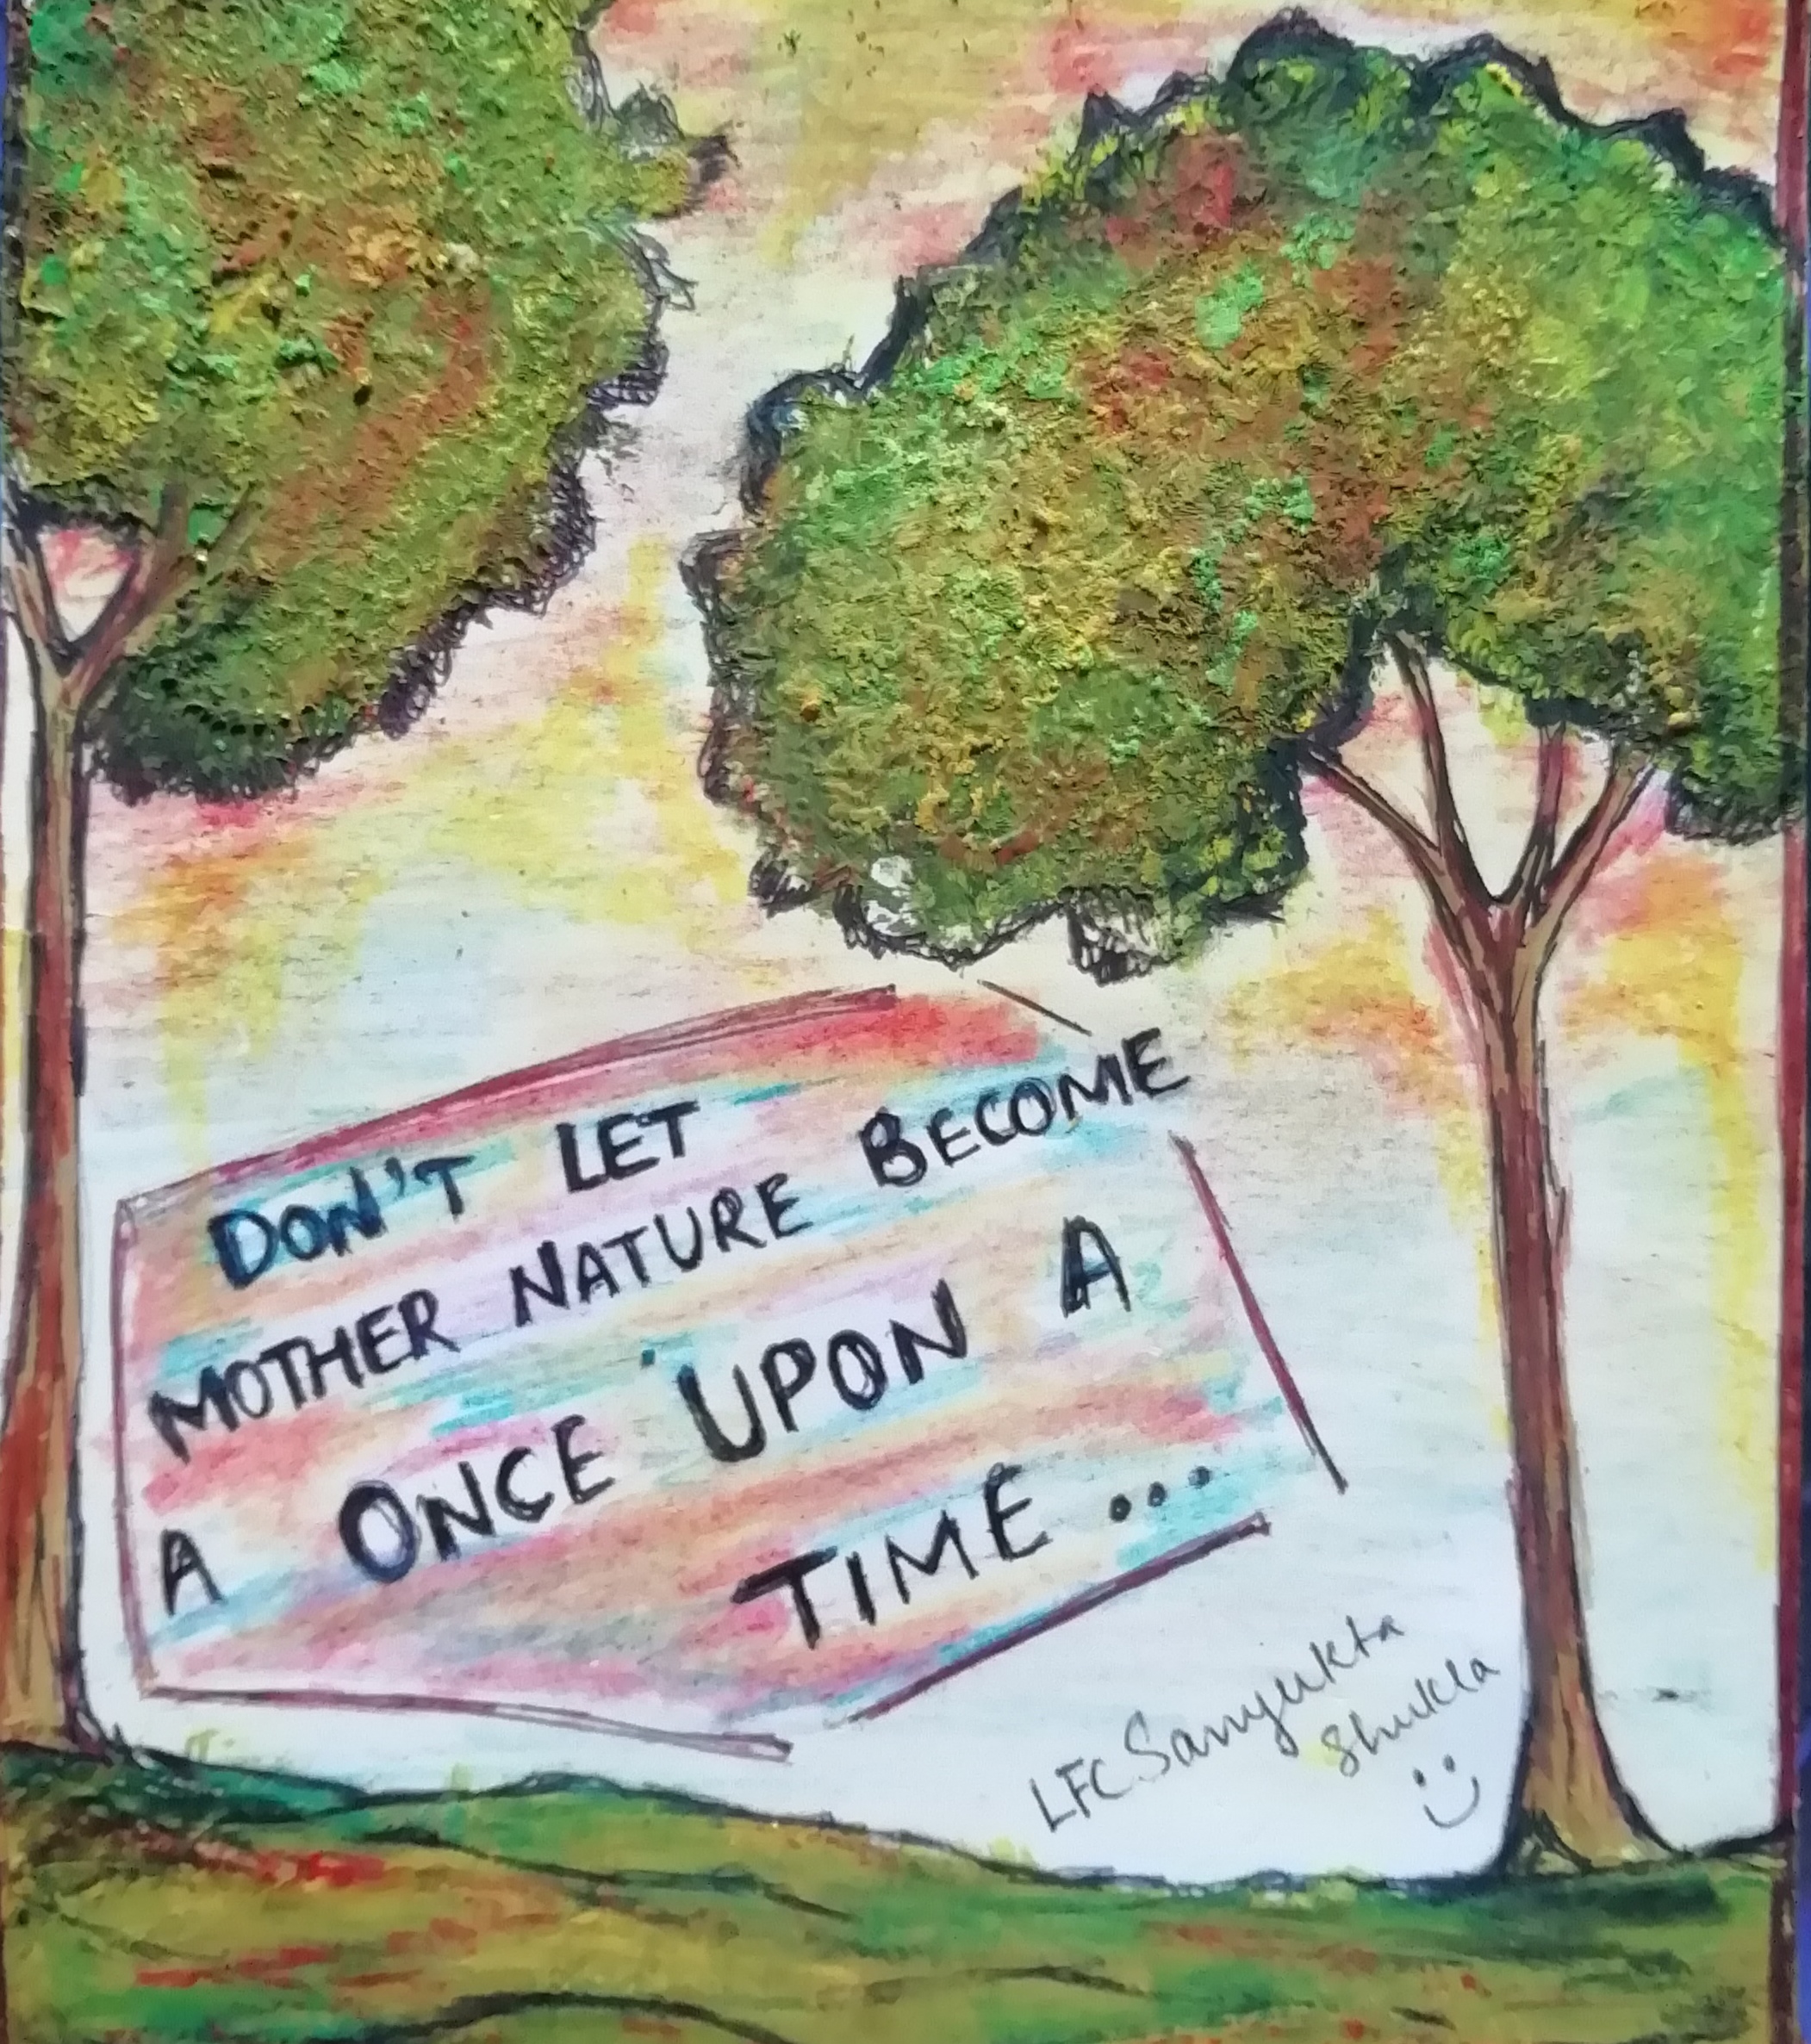 DON'T LET
MOTHER NATURE BECOME
A ONCE UPON A
TIME...
LFC Sanyukta
Shukla